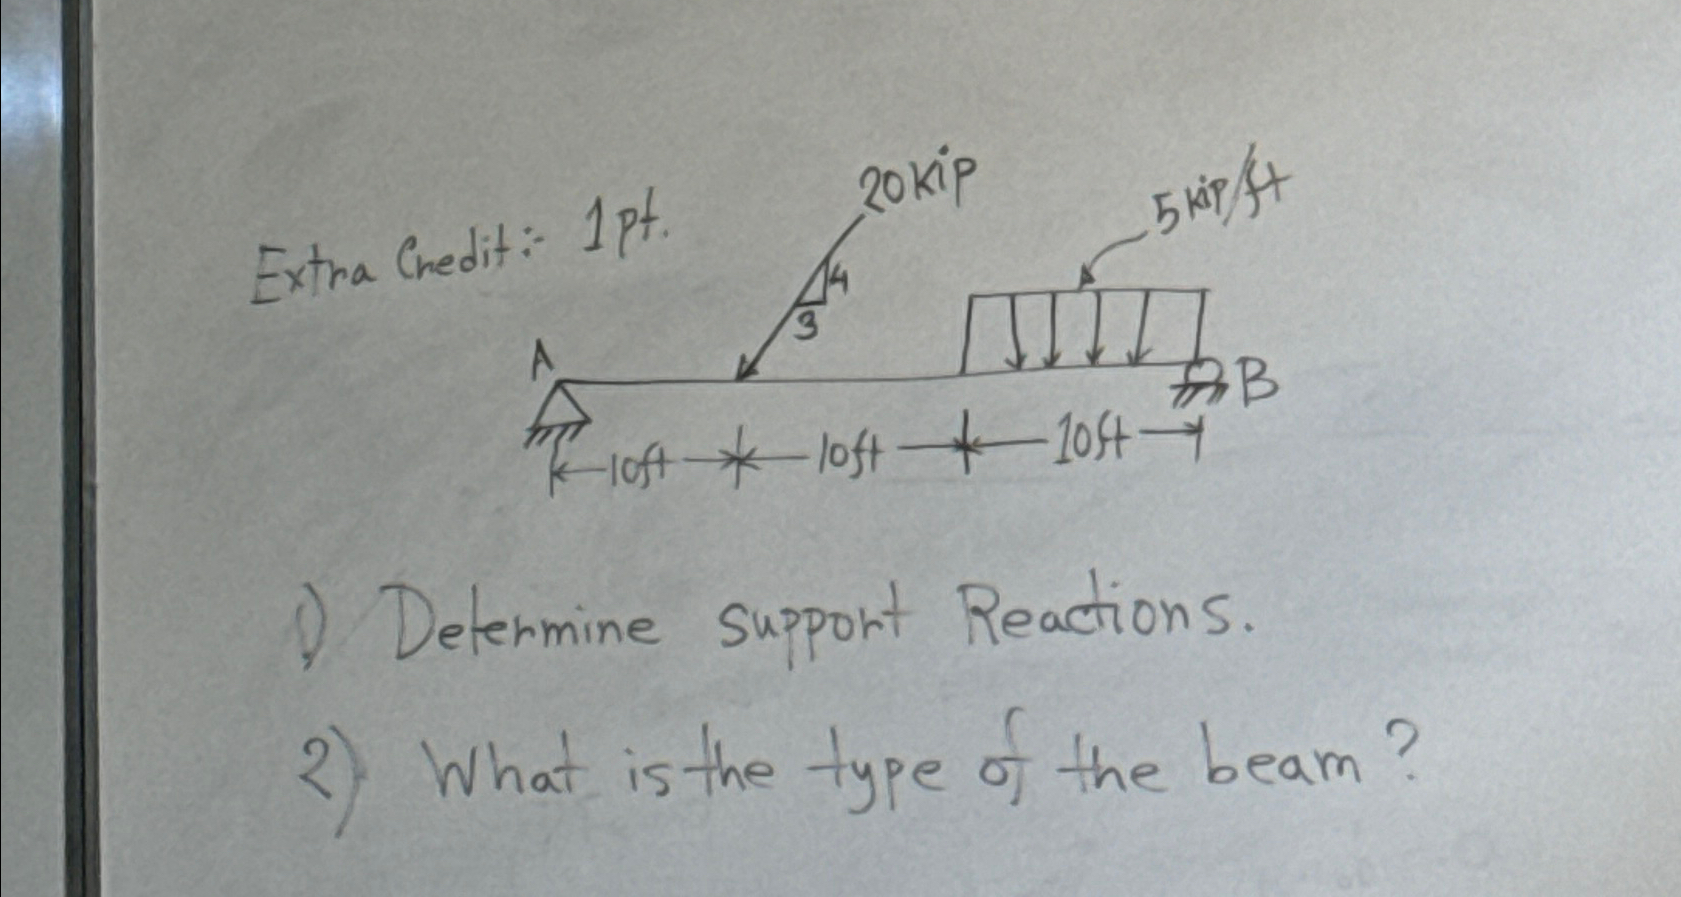 Extra Credit:- 1pt.
20kip
5kip/ft
4
3
A
B
10ft
10ft
10ft
1) Determine support Reactions.
2) What is the type of the beam?